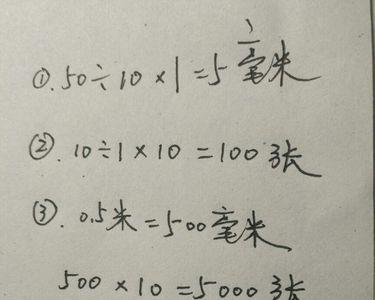 ①. 50÷10×1=5毫米
②. 10÷1×10=100张
③. 0.5米=500毫米
500×10=5000张